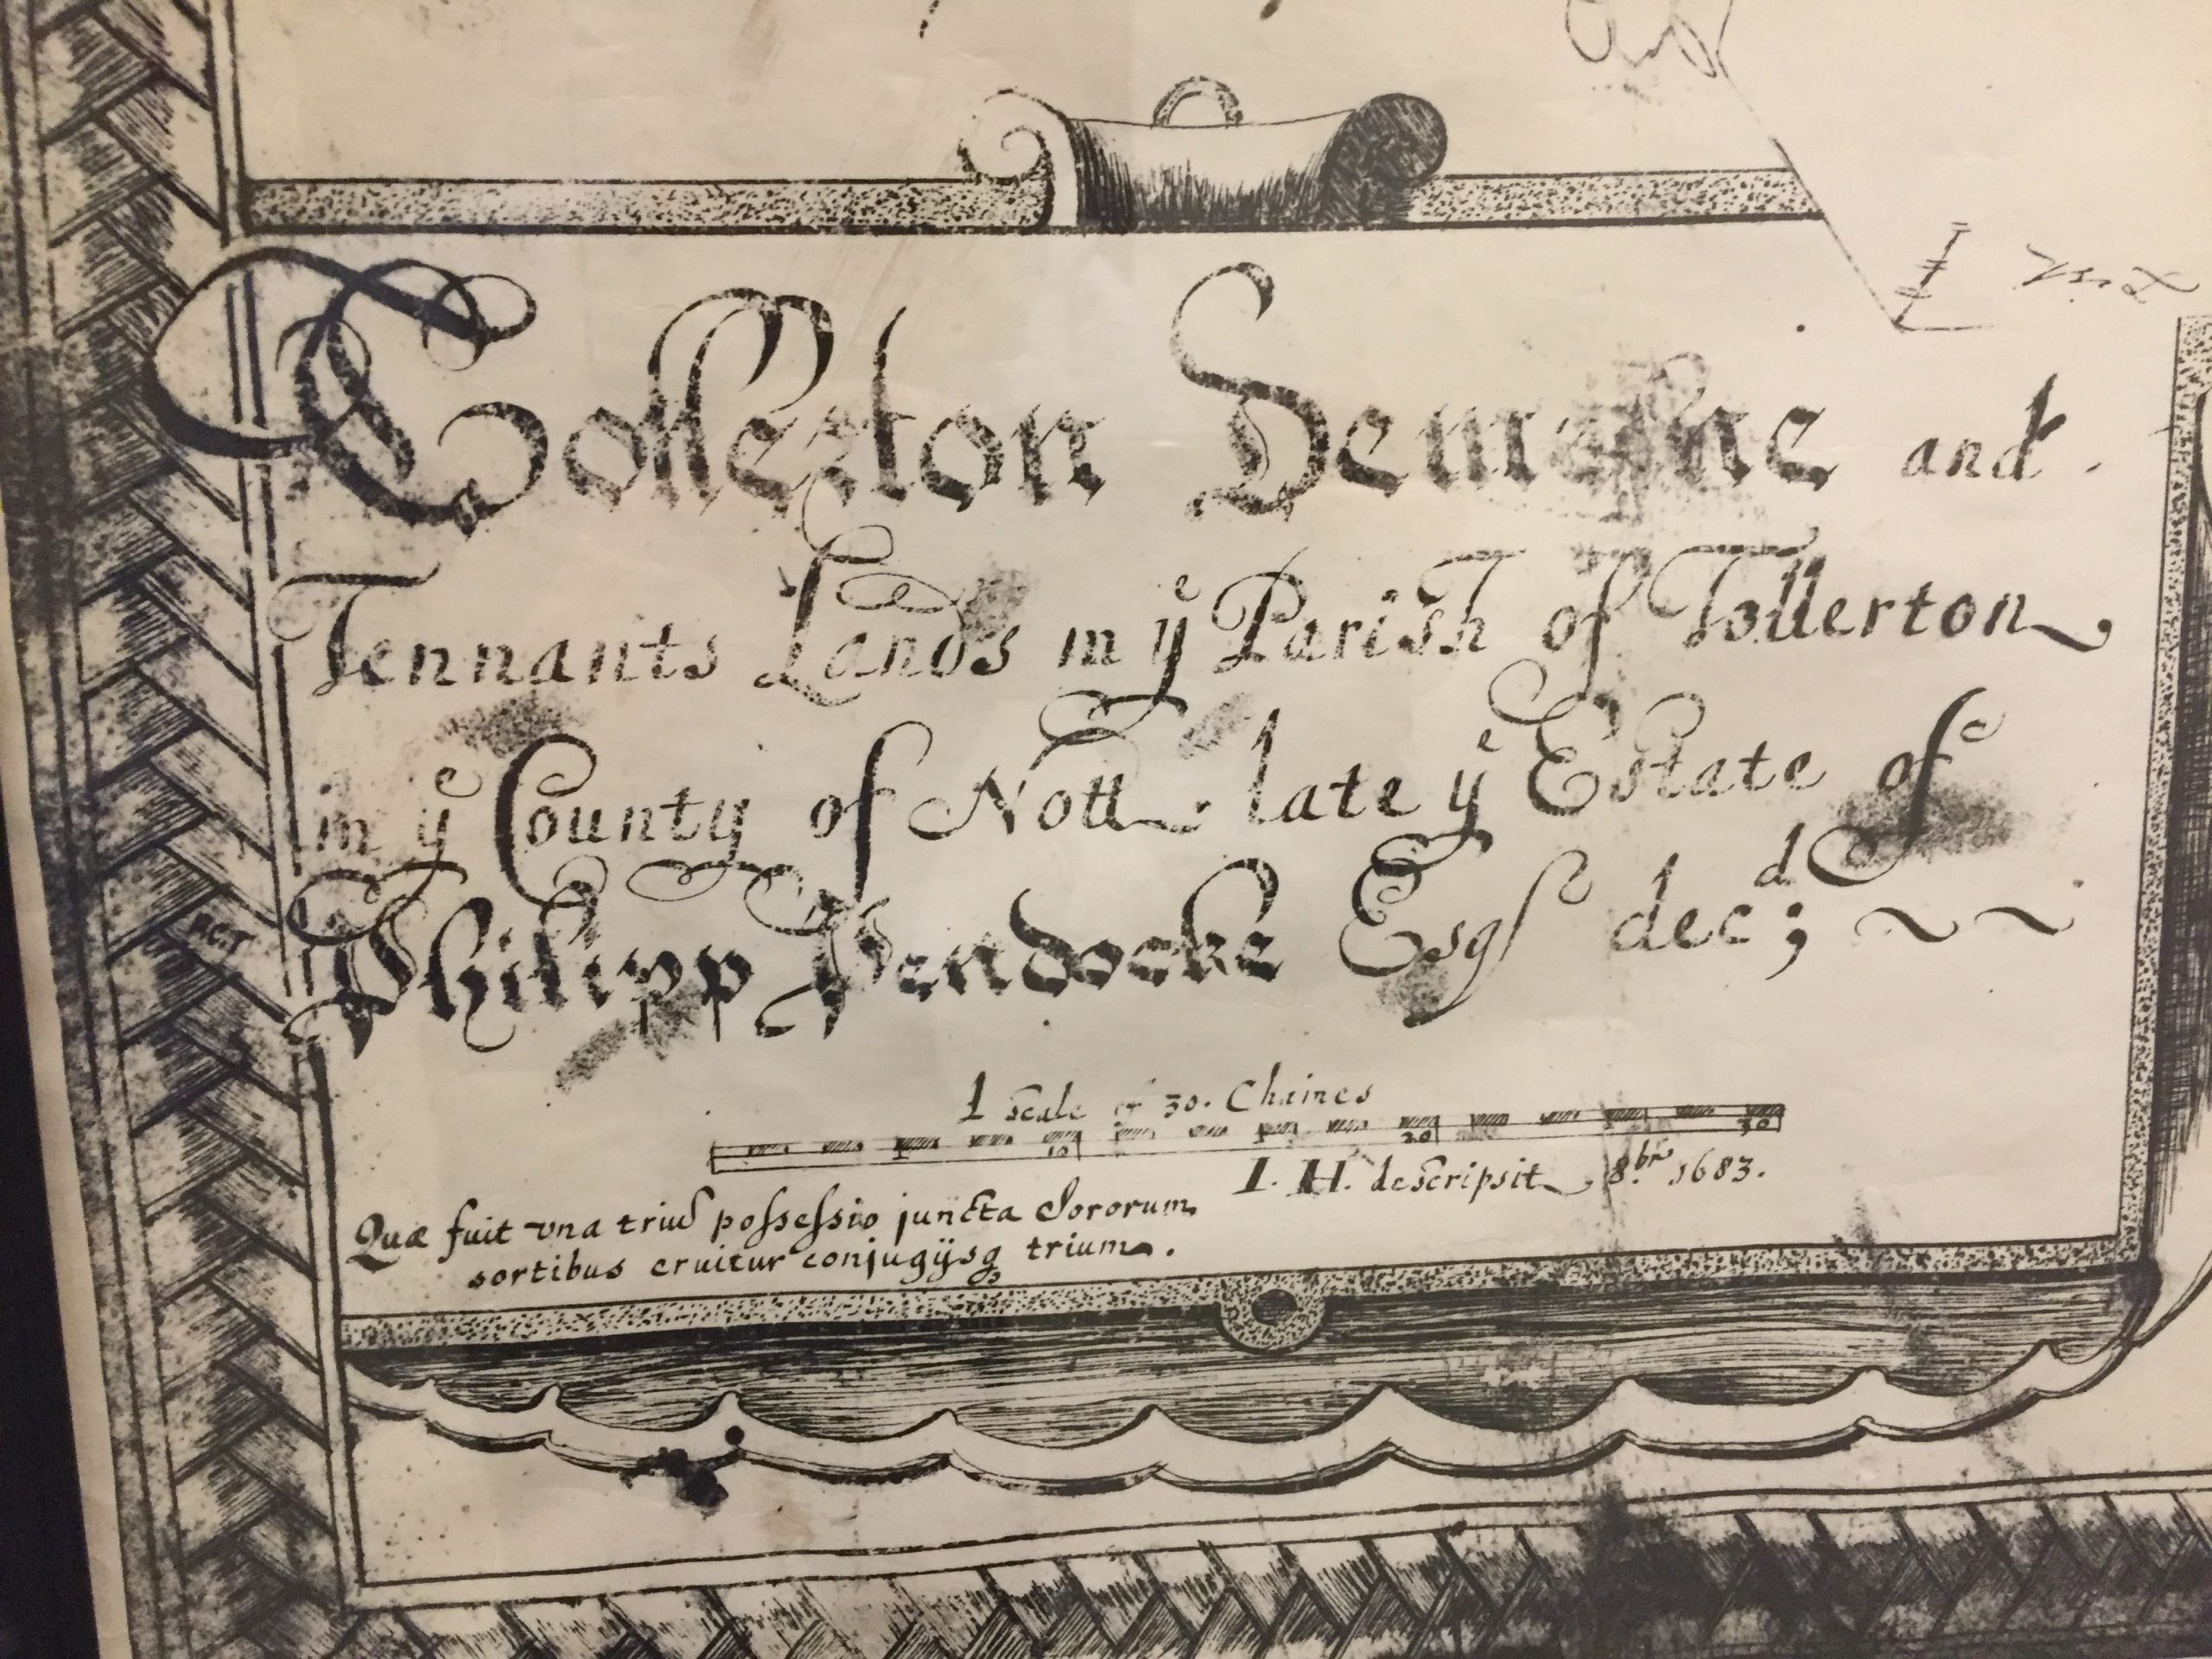 Tollerton Demeshe and
Tennants Lands in yͤ Parish of Tollerton
in yͤ County of Nott late yͤ Estate of
Philipp Pendocke Esqʳ decᵈ;
A scale of 30. Chaines
10 20 30
I. H. descripsit 8.ᵇʳ 1683.
Quæ fuit vna triũ poſseſsio juncta Sororum
sortibus eruitur conjugijsq trium.